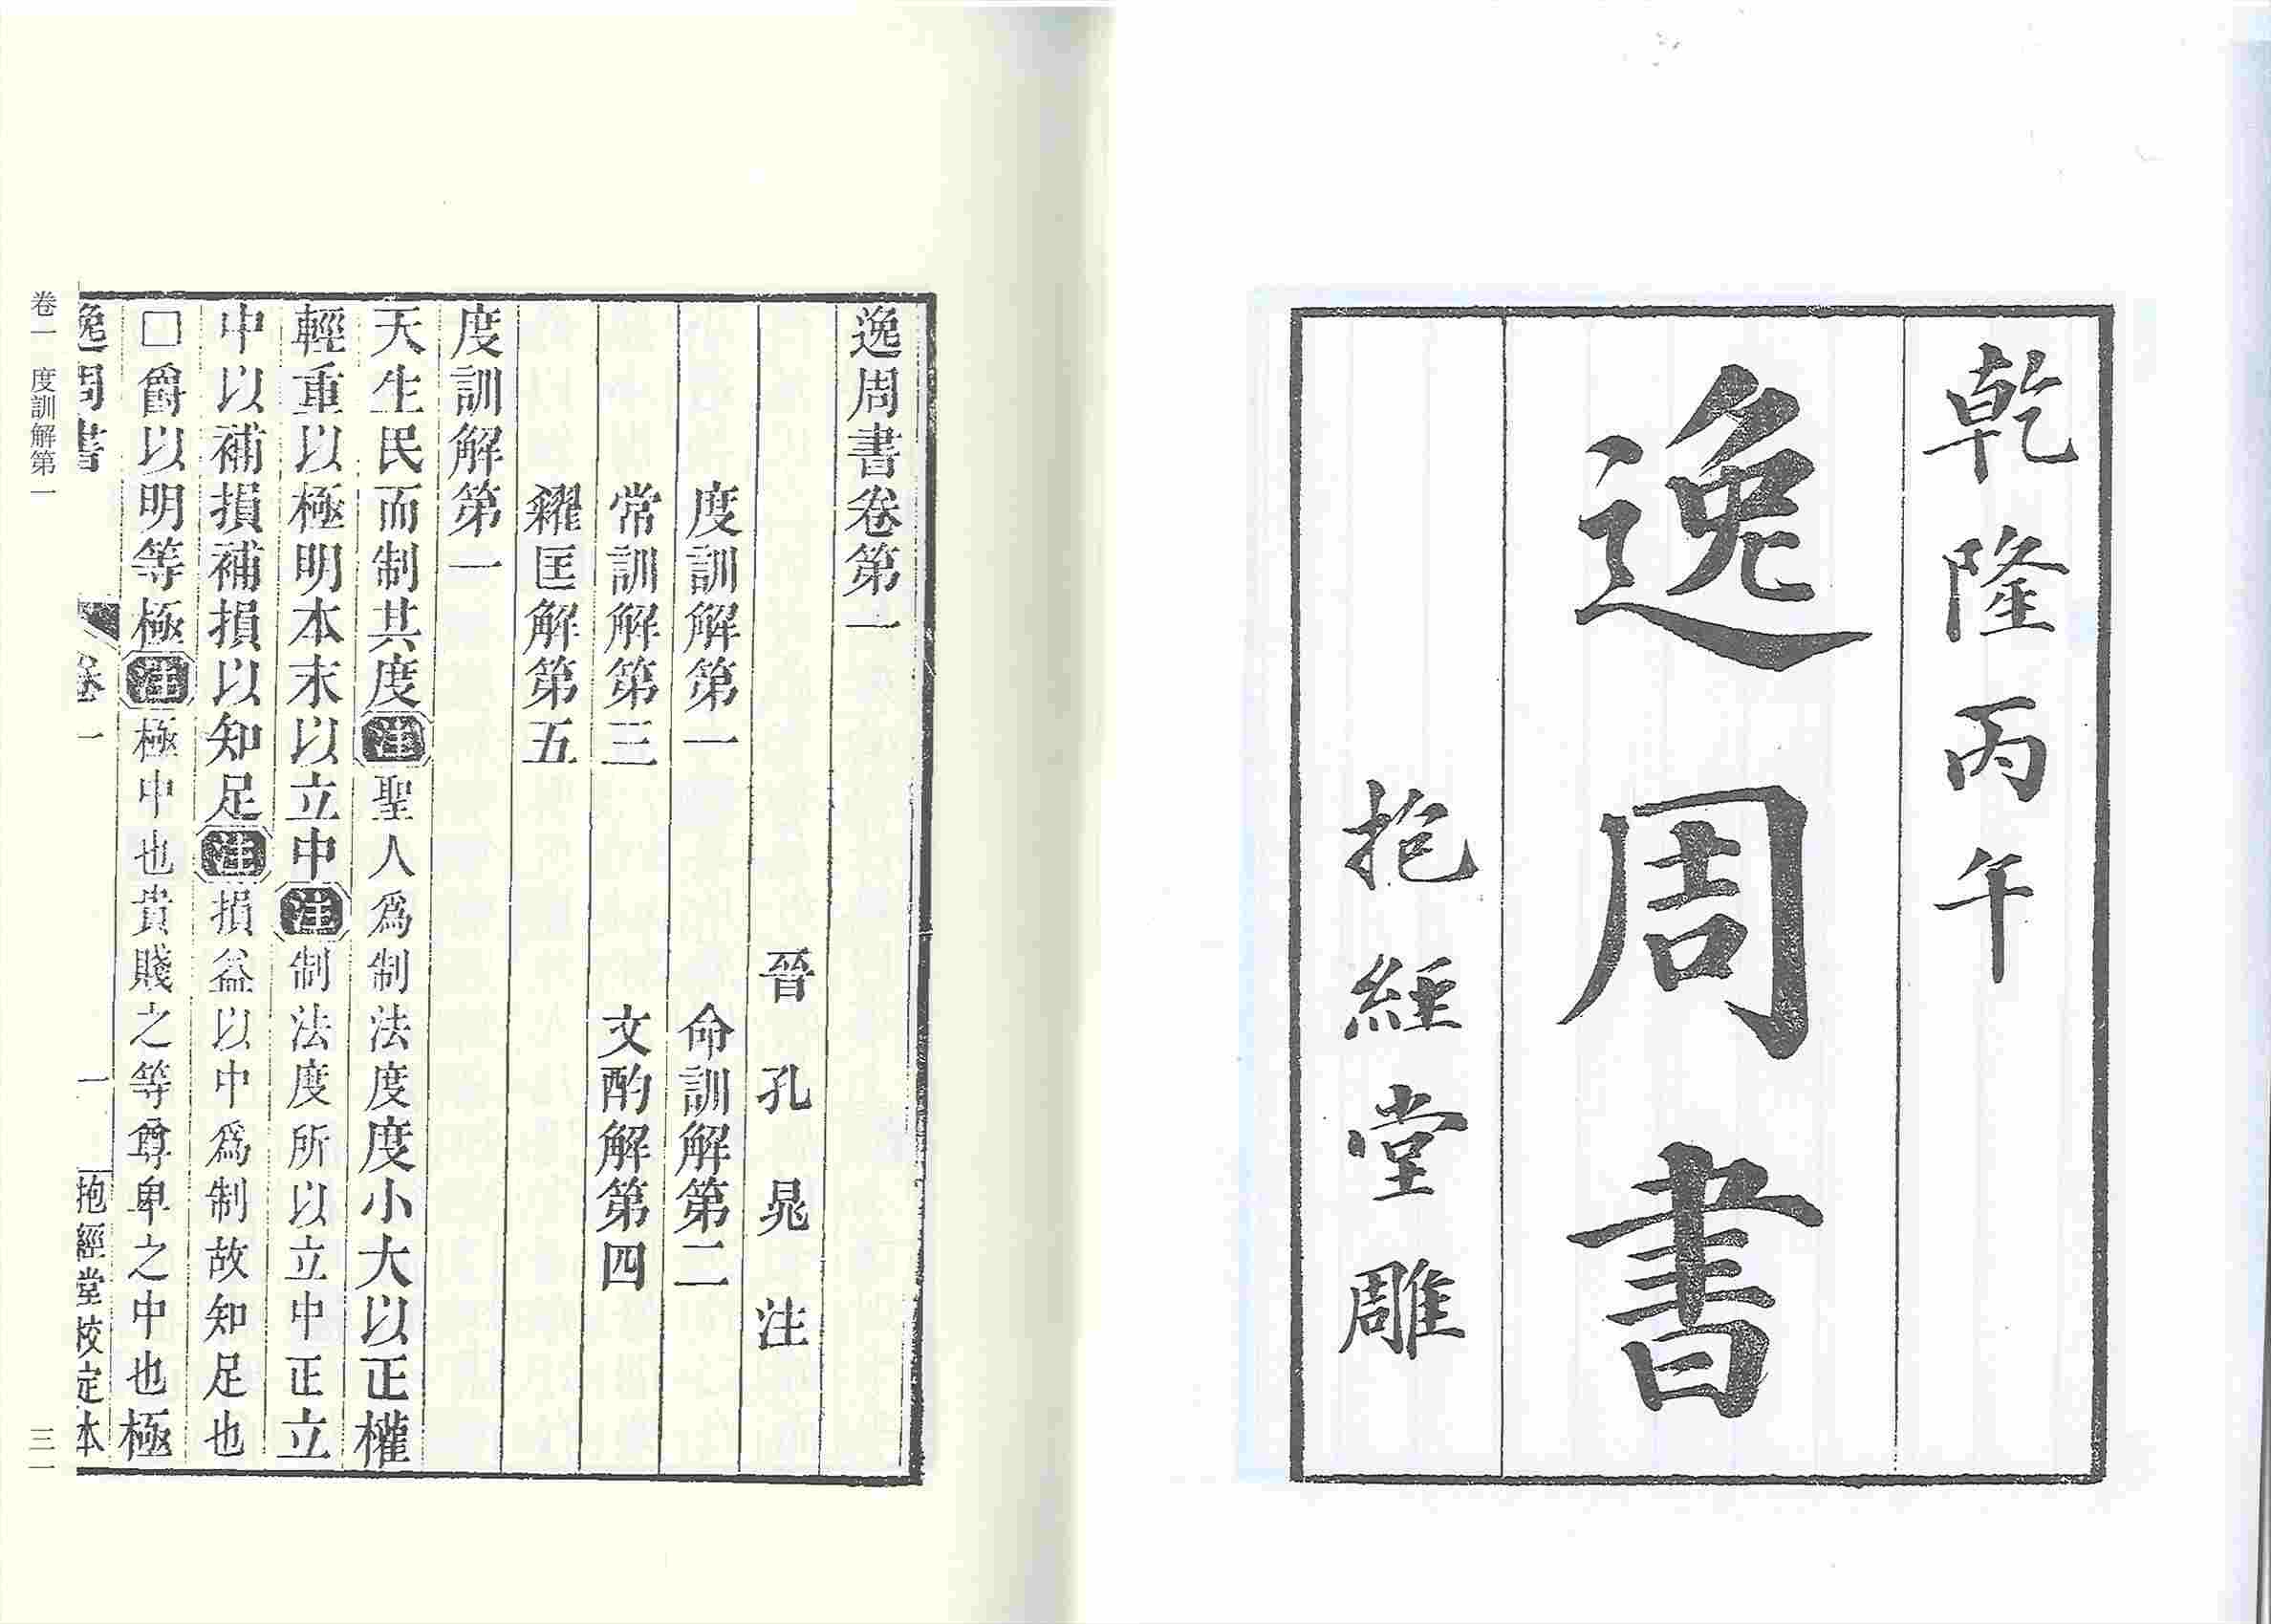 乾隆丙午
逸周書
抱經堂雕
逸周書卷第一
晉孔晁注
度訓解第一 命訓解第二
常訓解第三 文酌解第四
糴匡解第五
度訓解第一
天生民而制其度注聖人爲制法度度小大以正權
輕重以極明本末以立中注制法度所以立中正立
中以補損補損以知足注損益以中爲制故知足也
□爵以明等極注極中也貴賤之等尊卑之中也極
逸周書 卷一 一 抱經堂校定本
卷一 度訓解第一 三一